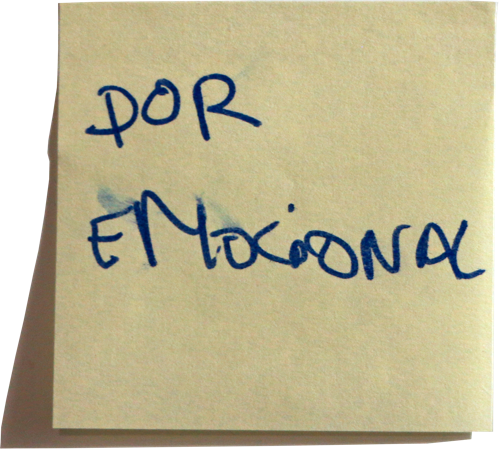 DOR
EMOCIONAL